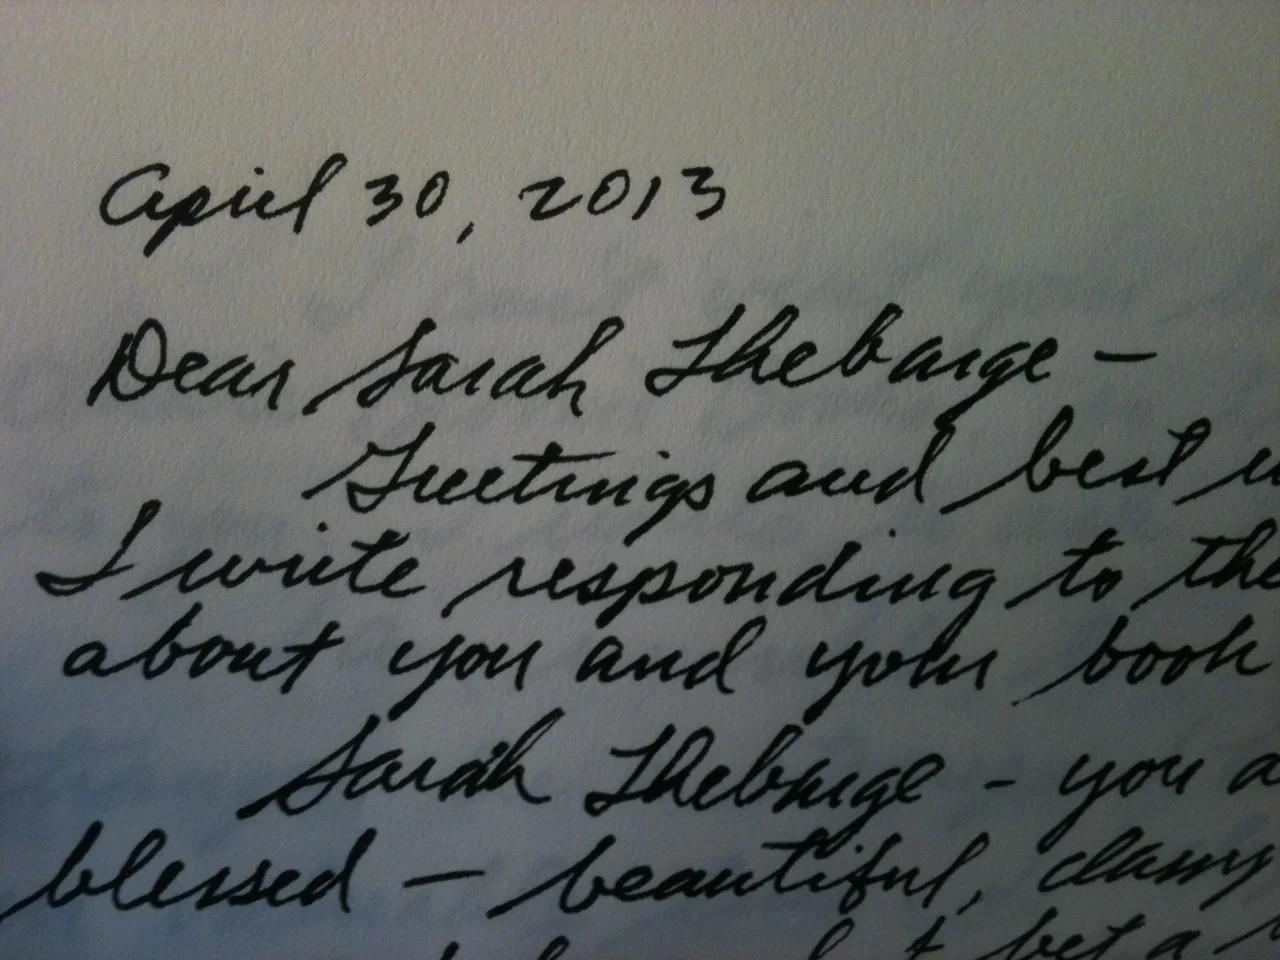 April 30, 2013
Dear Sarah Thebarge —
Greetings and best
I write responding to the
about you and your book
Sarah Thebarge - you a
blessed — beautiful, classy
bet a